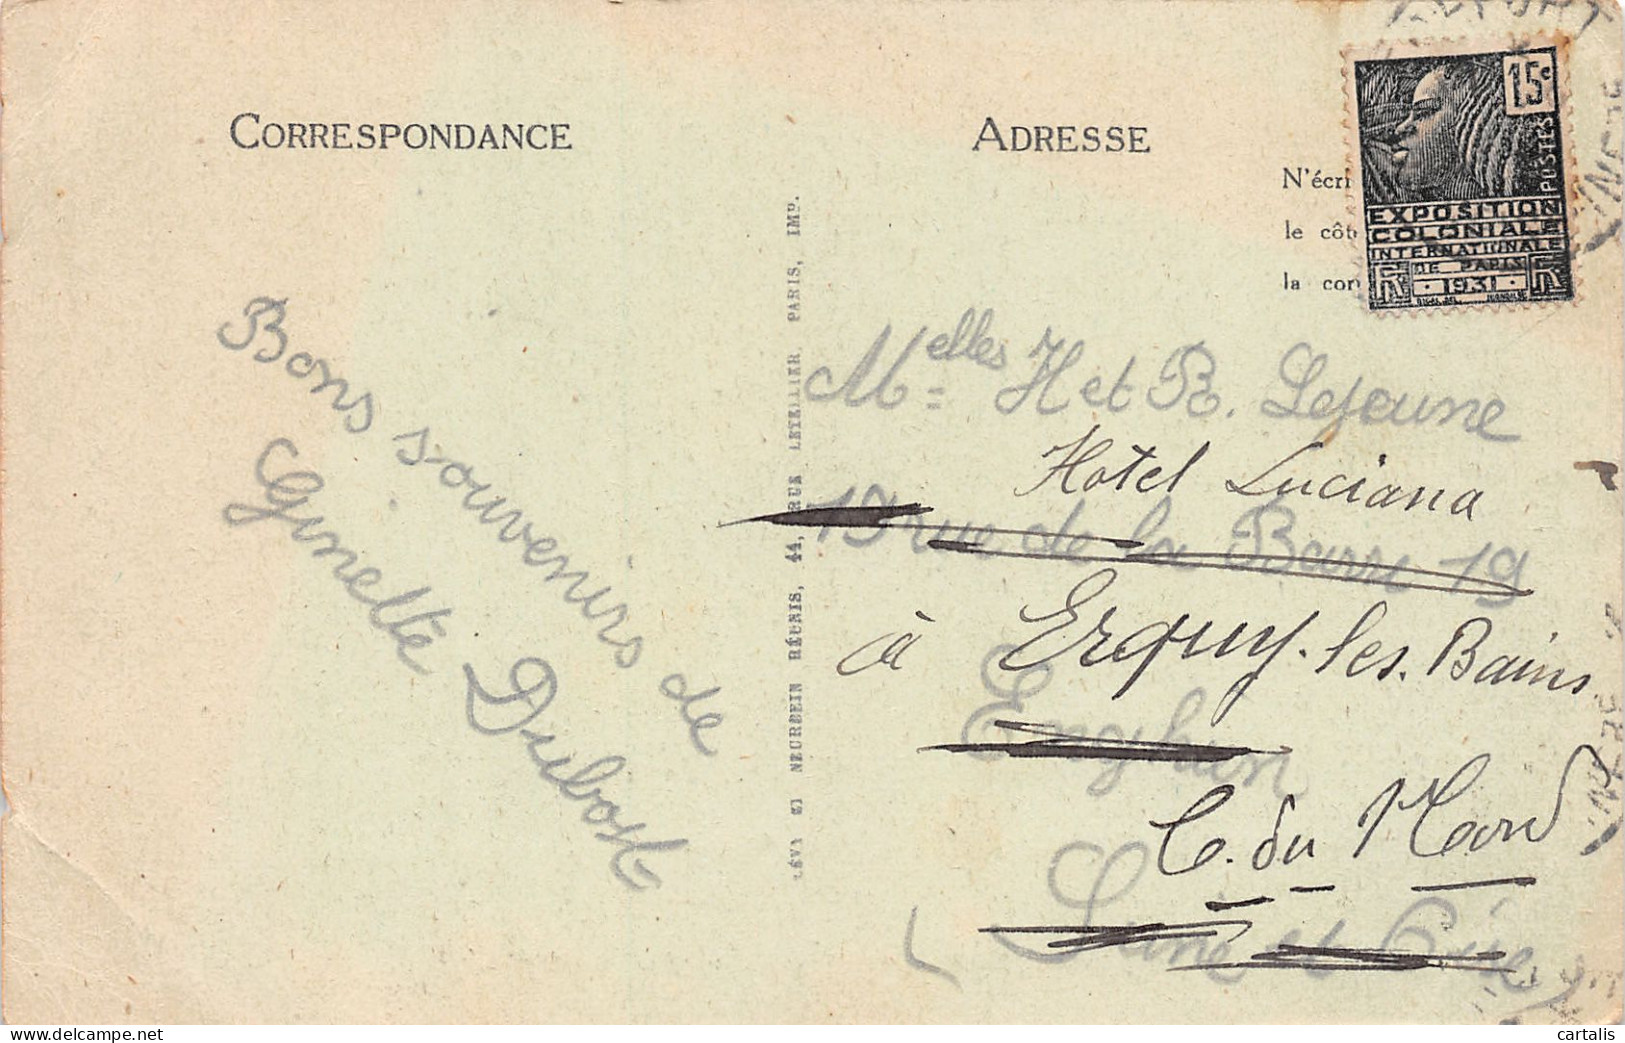 CORRESPONDANCE
ADRESSE
N'écri
le côt
la cor
15c
POSTES
EXPOSITION
COLONIALE
INTERNATIONALE
DE PARIS
1931
RF RF
LÉVY ET NEURDEIN RÉUNIS, 44, RUE LETELLIER, PARIS, IMP.
Bons souvenirs de
Ginette Dubost
Melles H et R. Lejeune
Hotel Luciana
19 rue de la Barre 19
à Erquy-les-Bains
Enghien
C. du Nord
(Seine et Oise)
cartalis